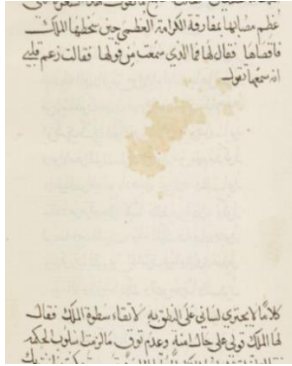 عظم مصابها بمفارقة الكرامة العظمى حين سخطها الملك
فاقصاها فقال لها فما الذي سمعت من قولها فقالت زعم قلبي
انه سمعها تقول
كلاما لا يجتري لساني على النطق به لاتقاء سطوة الملك فقال
لها الملك قولي على حال امنة وعدم توق مالزمت اسلوب الحكمة